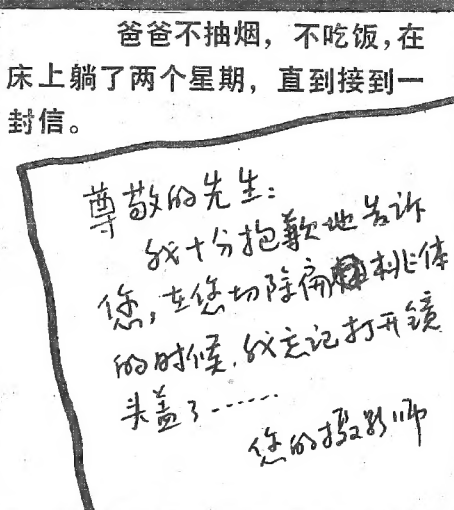 爸爸不抽烟，不吃饭，在
床上躺了两个星期，直到接到一
封信。
尊敬的先生：
我十分抱歉地告诉
您，在您切除扁桃体
的时候，我忘记打开镜
头盖了······
您的摄影师